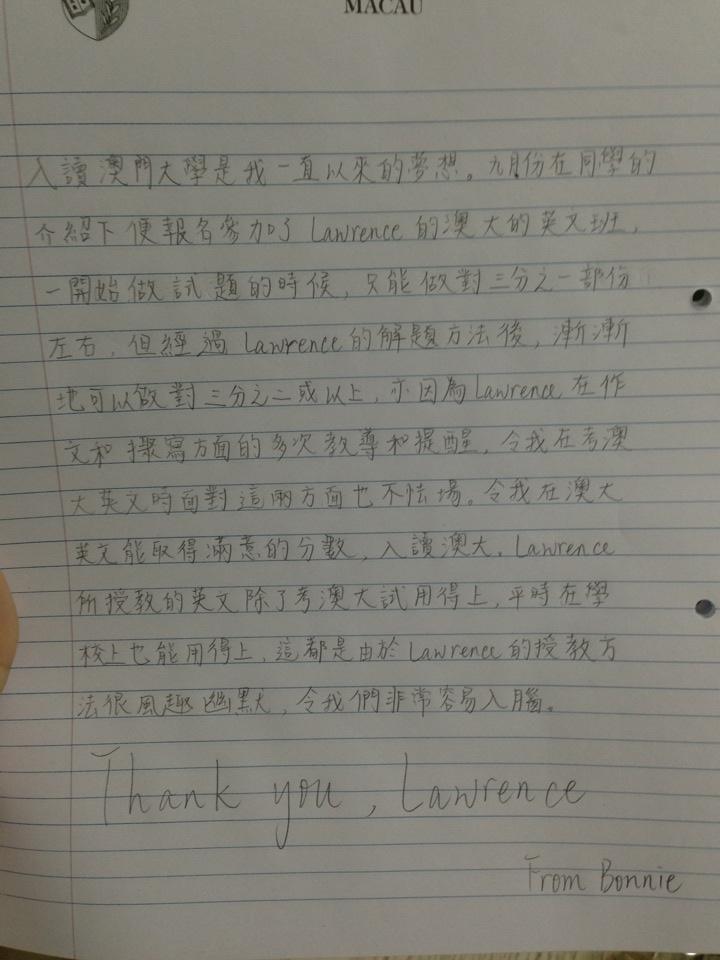 MACAU
入讀澳門大學是我一直以來的夢想。九月份在同學的
介紹下便報名參加了Lawrence的澳大的英文班，
一開始做試題的時候，只能做對三分之一部份
左右，但經過Lawrence的解題方法後，漸漸
地可以做對三分之二或以上，亦因為Lawrence在作
文和撮寫方面的多次教導和提醒，令我在考澳
大英文時面對這兩方面也不怯場。令我在澳大
英文能取得滿意的分數，入讀澳大。Lawrence
所授教的英文除了考澳大試用得上，平時在學
校上也能用得上，這都是由於Lawrence的授教方
法很風趣幽默，令我們非常容易入腦。
Thank you, Lawrence
From Bonnie